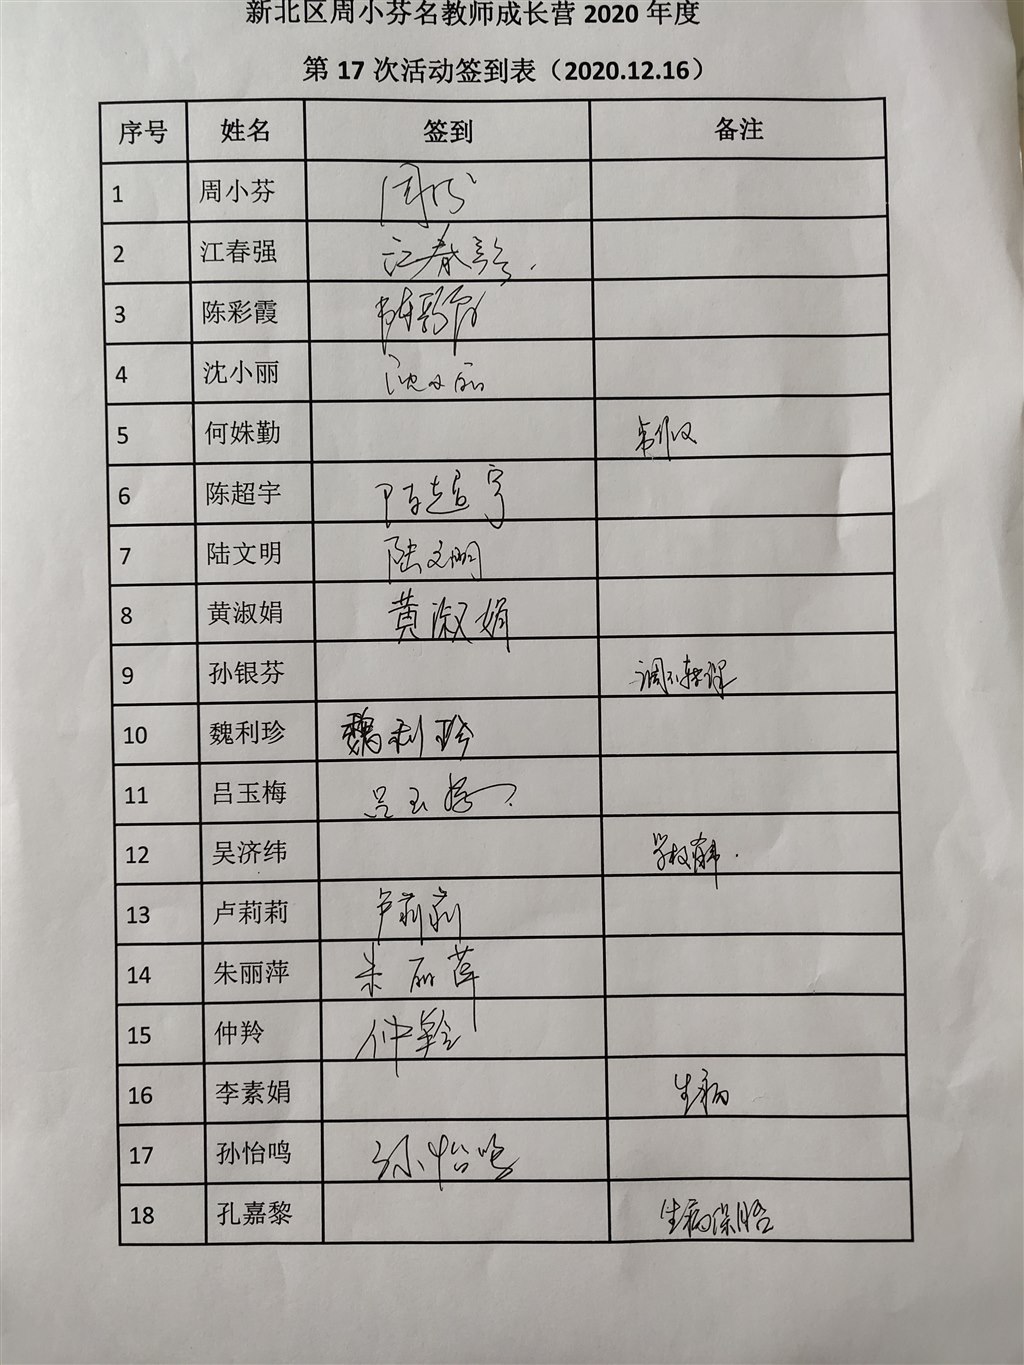 新北区周小芬名教师成长营 2020 年度
第 17 次活动签到表（2020.12.16）
序号 姓名 签到 备注
1 周小芬 周小芬
2 江春强 江春强.
3 陈彩霞 陈彩霞
4 沈小丽 沈小丽
5 何姝勤
6 陈超宇 陈超宇
7 陆文明 陆文明
8 黄淑娟 黄淑娟
9 孙银芬
10 魏利珍 魏利珍
11 吕玉梅 吕玉梅
12 吴济纬
13 卢莉莉 卢莉莉
14 朱丽萍 朱丽萍
15 仲羚 仲羚
16 李素娟 生病
17 孙怡鸣 孙怡鸣
18 孔嘉黎 生病